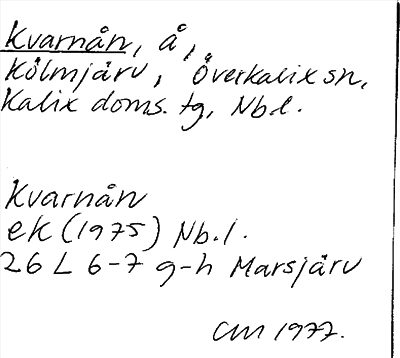 Kvarnån, å,
Kölmjärv, Överkalix sn,
Kalix doms. tg, Nb.l.
Kvarnån
ek (1975) Nb.l.
26 L 6-7 g-h Marsjärv
CM 1977.